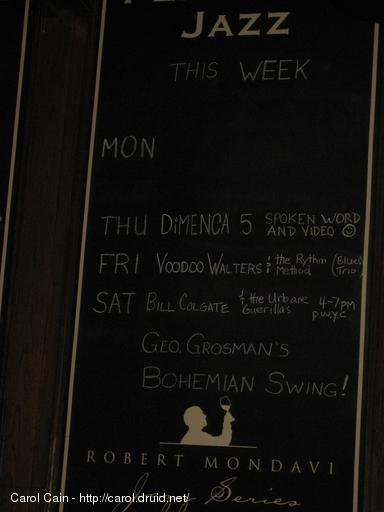 JAZZ
THIS WEEK
MON
THU DiMENCA 5 SPOKEN WORD AND VIDEO
FRI VOODOO WALTERS & the Rythm Method (Blues Trio)
SAT BILL COLGATE & the Urbane Guerillas 4-7PM p.w.y.c
GEO. GROSMAN'S
BOHEMIAN SWING!
ROBERT MONDAVI
Jazz Series
Carol Cain - http://carol.druid.net/